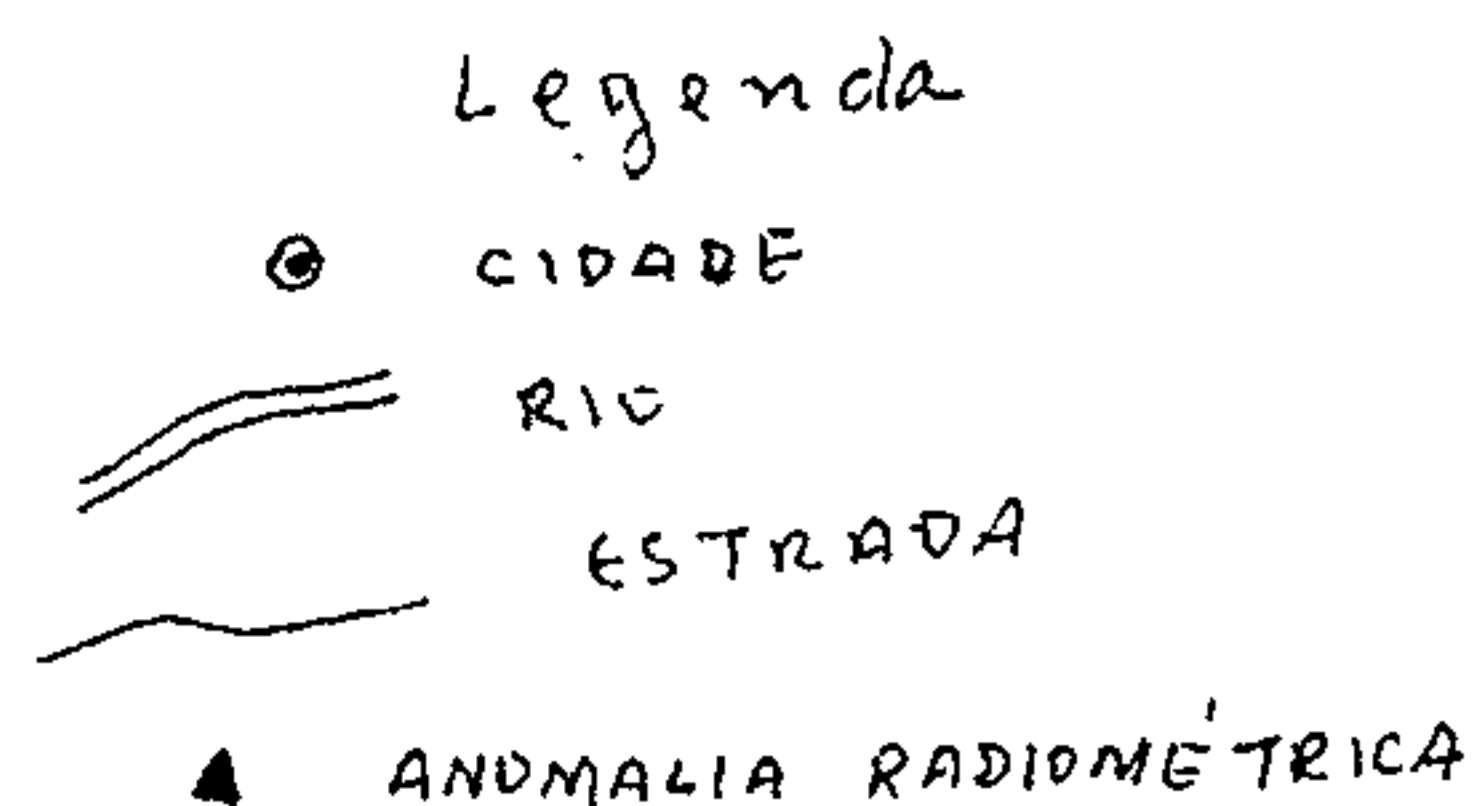 Legenda
CIDADE
RIO
ESTRADA
ANOMALIA RADIOMÉTRICA